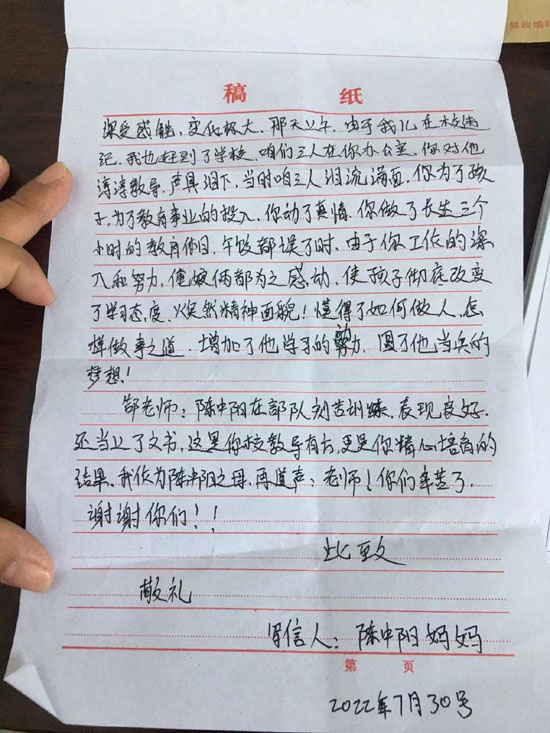 稿 纸
深受感触,变化极大。那天上午,由于我儿在校违
纪,我也赶到了学校,咱们三人在你办公室,你对他
谆谆教导,声具泪下,当时咱三人泪流满面,你为了孩
子,为了教育事业的投入,你动了真情,你做了长达三个
小时的教育,午饭都误了时,由于你工作的深
入和努力,俺娘俩都为之感动,使孩子彻底改变
了学习态度,焕然精神面貌!懂得了如何做人,怎
样做事之道,增加了他学习的努力,圆了他当兵的
梦想!
郜老师:陈中阳在部队刻苦训练,表现良好,
还当上了文书,这是你校教导有方,更是你精心培育的
结果,我作为陈中阳之母,再道声:老师!你们辛苦了,
谢谢你们!!
此致
敬礼
写信人:陈中阳妈妈
第 页
2022年7月30号